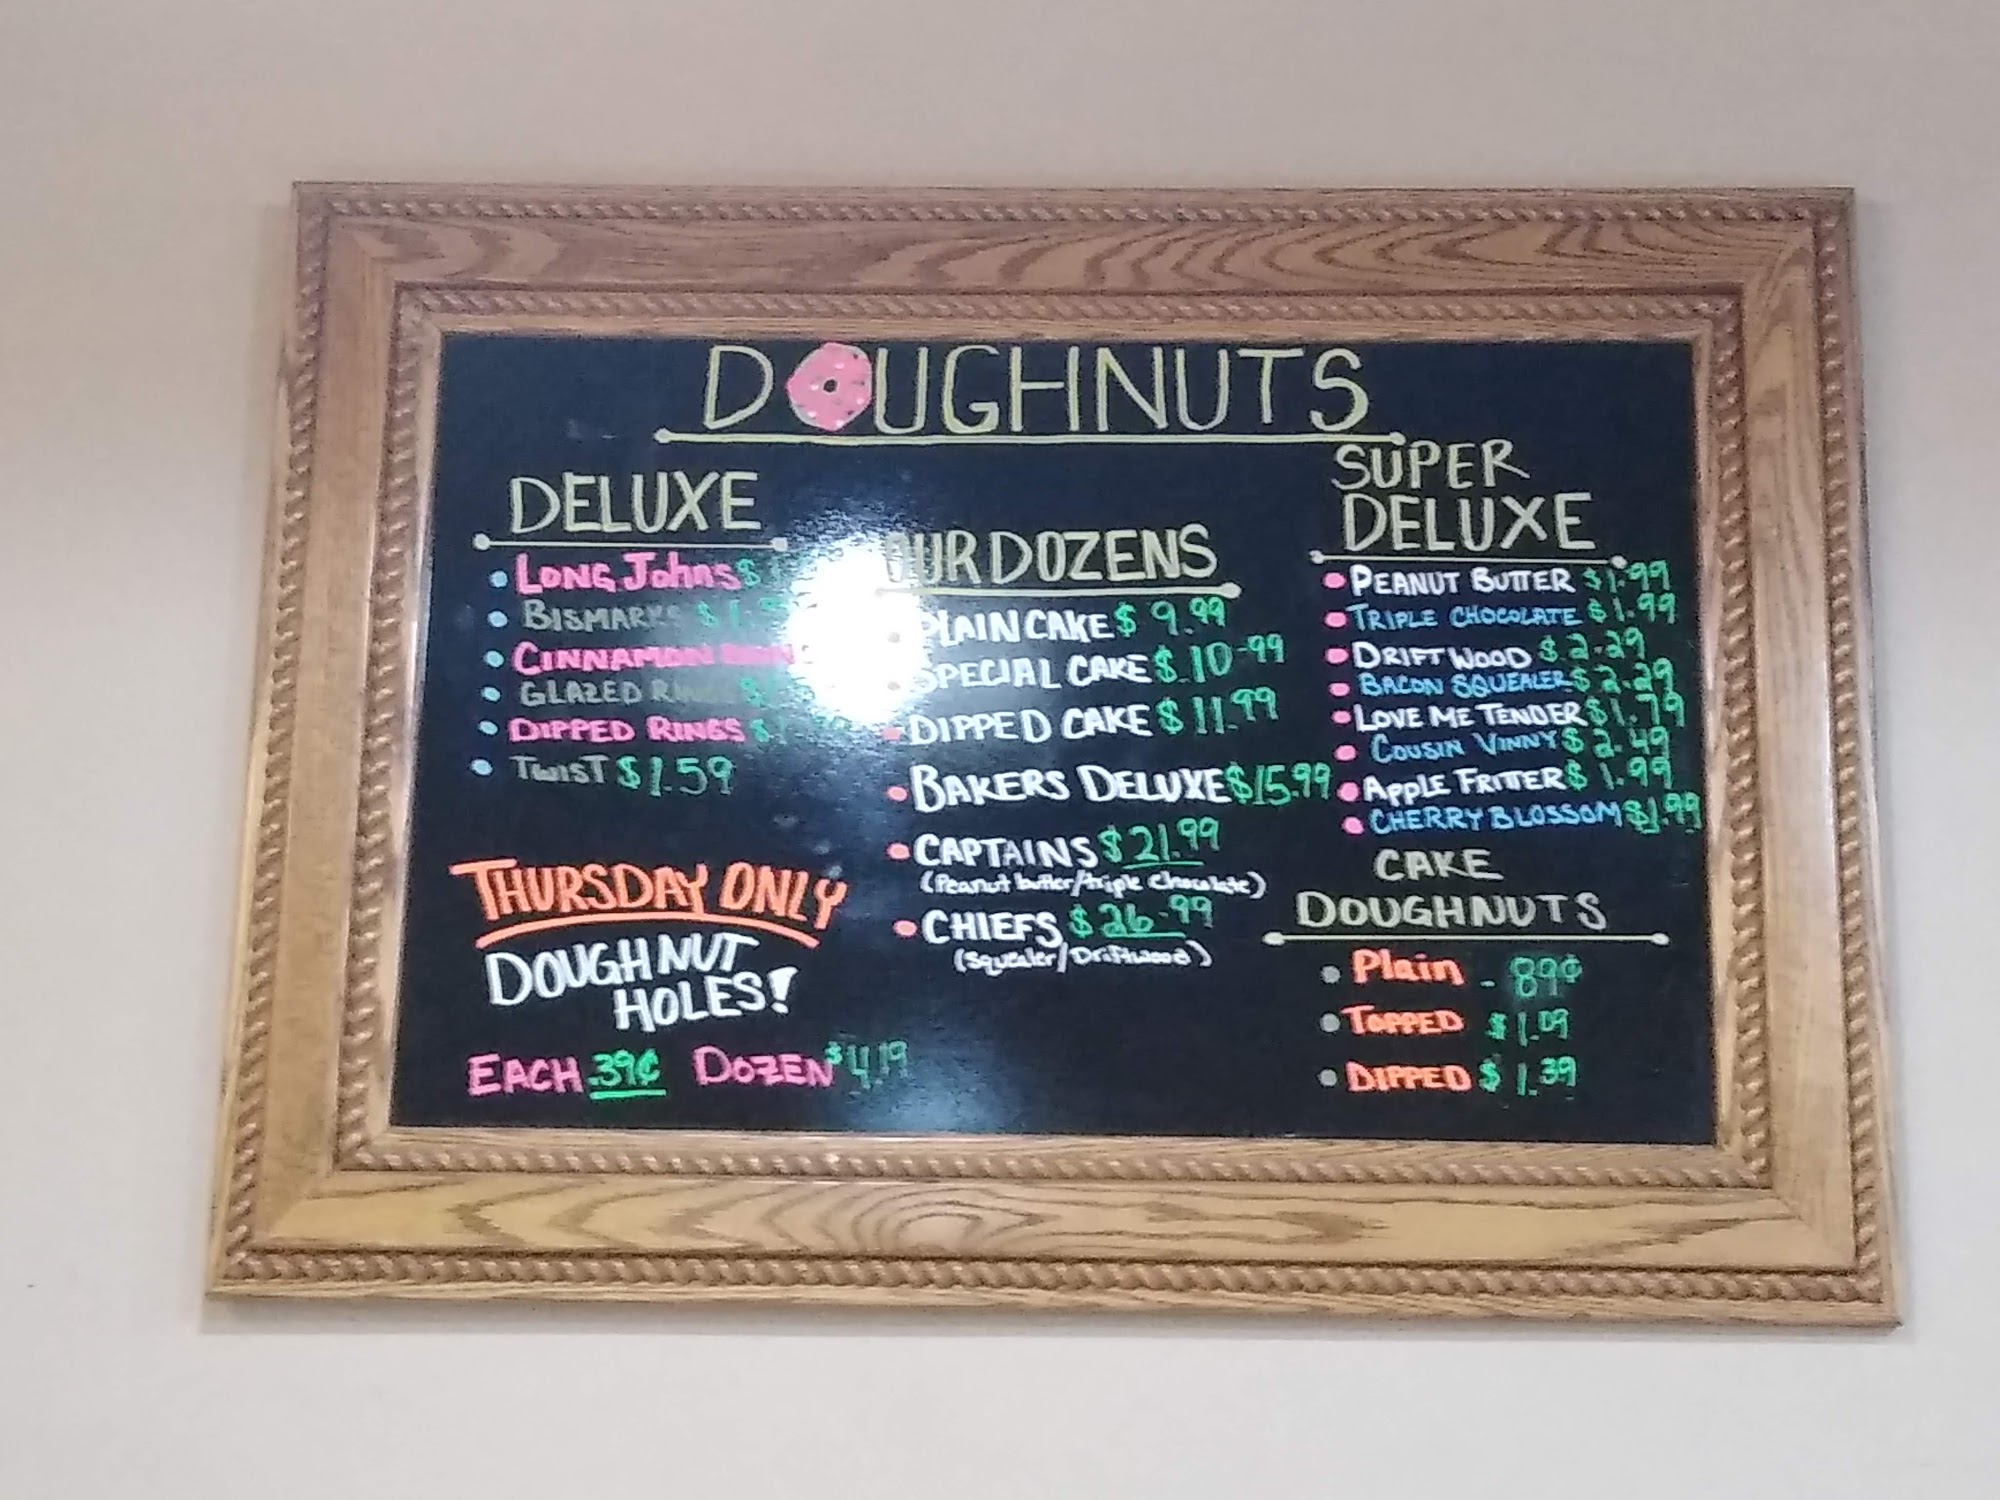 DOUGHNUTS
DELUXE
LONG JOHNS $
BISMARKS $1.
CINNAMON
GLAZED RINGS $
DIPPED RINGS $
TWIST $1.59
THURSDAY ONLY
DOUGHNUT
HOLES!
EACH .39¢ DOZEN $4.19
OUR DOZENS
PLAIN CAKE $9.99
SPECIAL CAKE $10.99
DIPPED CAKE $11.99
BAKERS DELUXE $15.99
CAPTAINS $21.99
(Peanut butter/triple chocolate)
CHIEFS $26.99
(Squealer/Driftwood)
SUPER
DELUXE
PEANUT BUTTER $1.99
TRIPLE CHOCOLATE $1.99
DRIFTWOOD $2.29
BACON SQUEALER $2.29
LOVE ME TENDER $1.79
COUSIN VINNY $2.49
APPLE FRITTER $1.99
CHERRY BLOSSOM $1.99
CAKE
DOUGHNUTS
Plain - 89¢
TOPPED $1.09
DIPPED $1.39